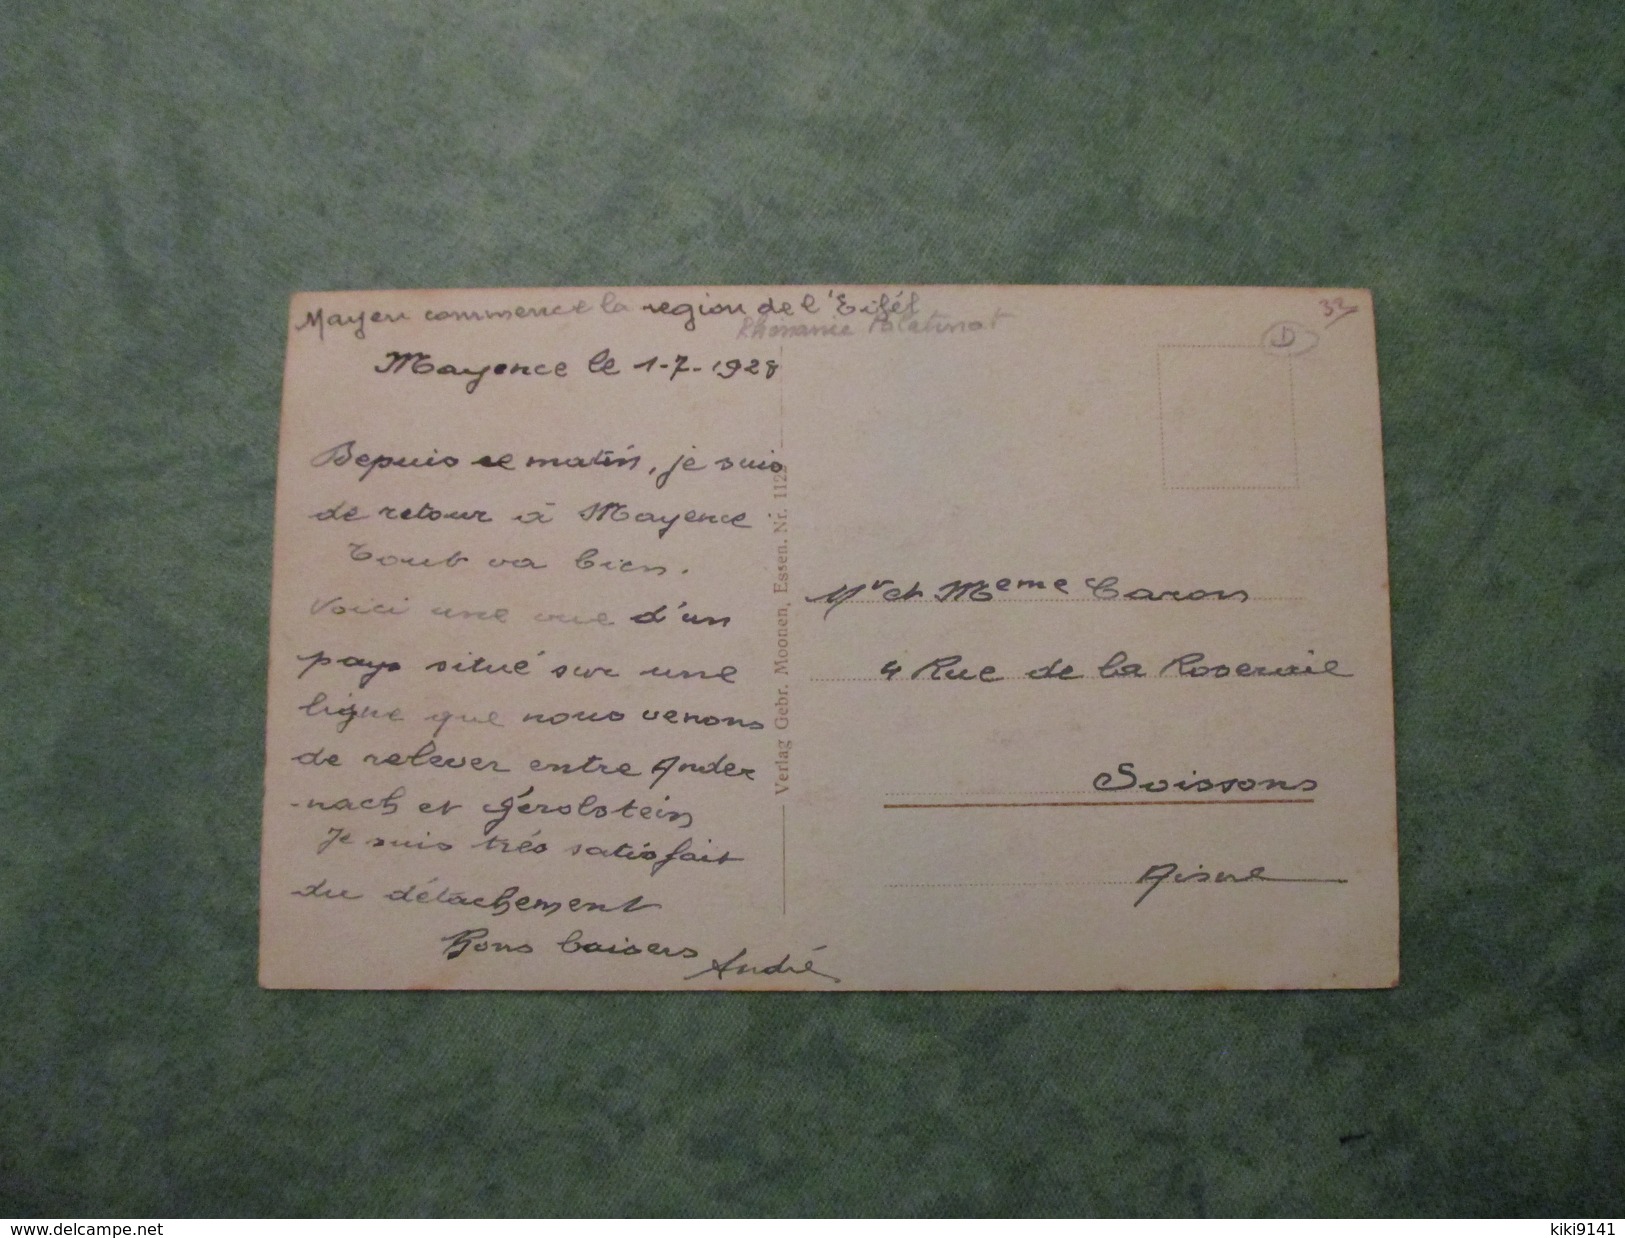 Mayen commence la region de l'Eifél
Rhénanie Palatinat
33
D
Mayence le 1-7-1928
Depuis ce matin, je suis
de retour à Mayence
Tout va bien.
Voici une vue d'un
pays situé sur une
ligne que nous venons
de relever entre Ander
-nach et Gérolstein
Je suis trés satisfait
du détachement
Bons baisers
André
Verlag Gebr. Moonen, Essen. Nr. 112
Mr et Meme Caron
4 Rue de la Roseraie
Soissons
Aisne
www.delcampe.net
kiki9141